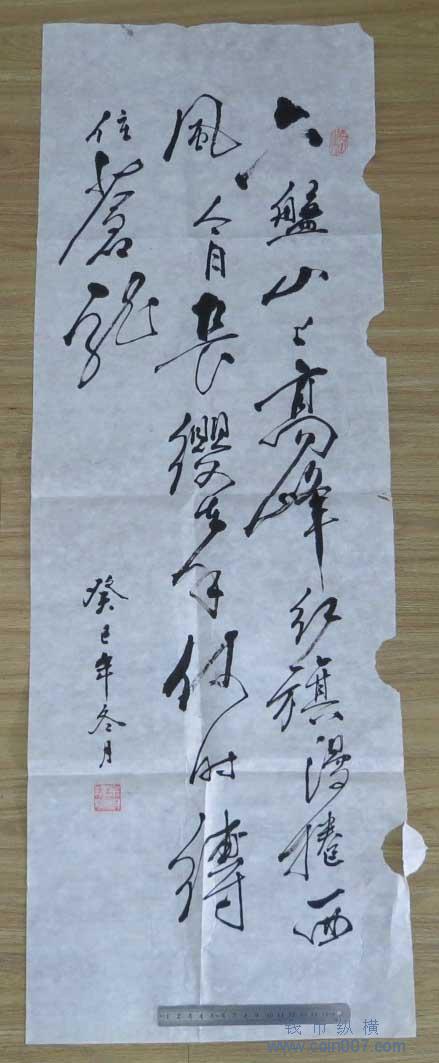 六盤山上高峰红旗漫捲西
風今日長纓在手何时縛
住蒼龍
癸巳年冬月
钱币纵横
www.coin007.com